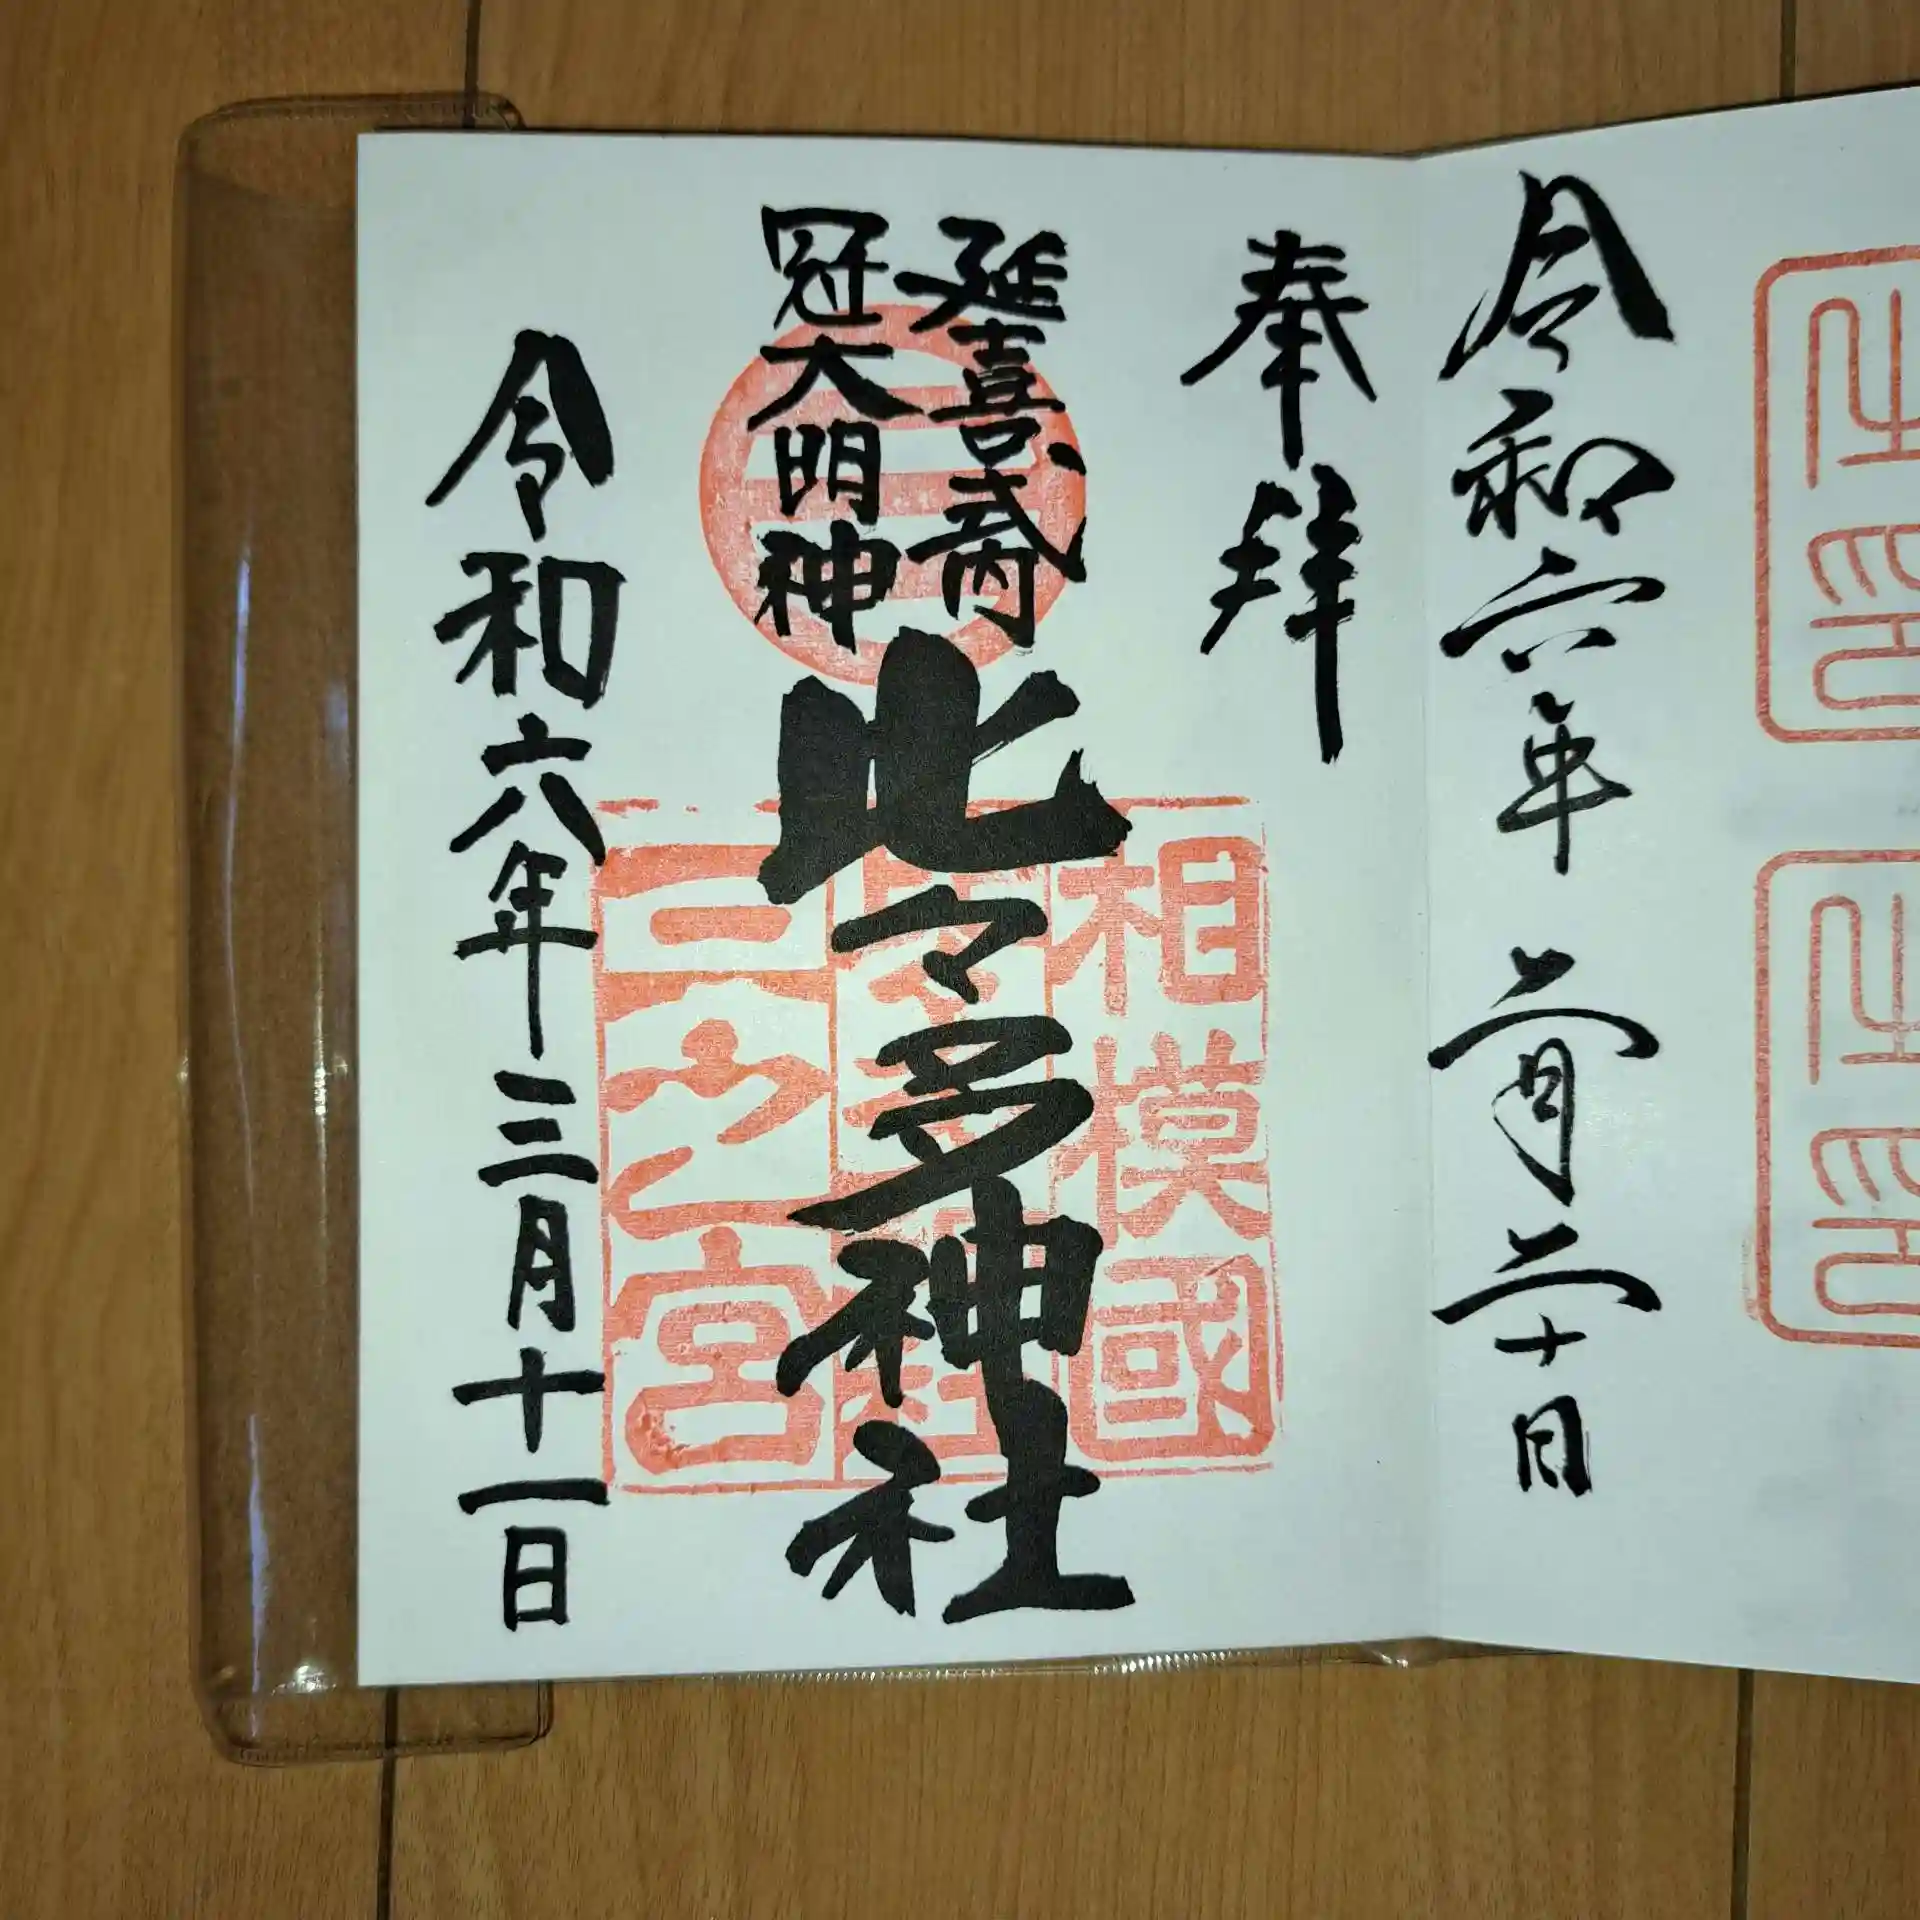 令和六年 二月二十日
奉拜
延喜式内
冠大明神
比々多神社
相模國
三之宮
令和六年三月十一日